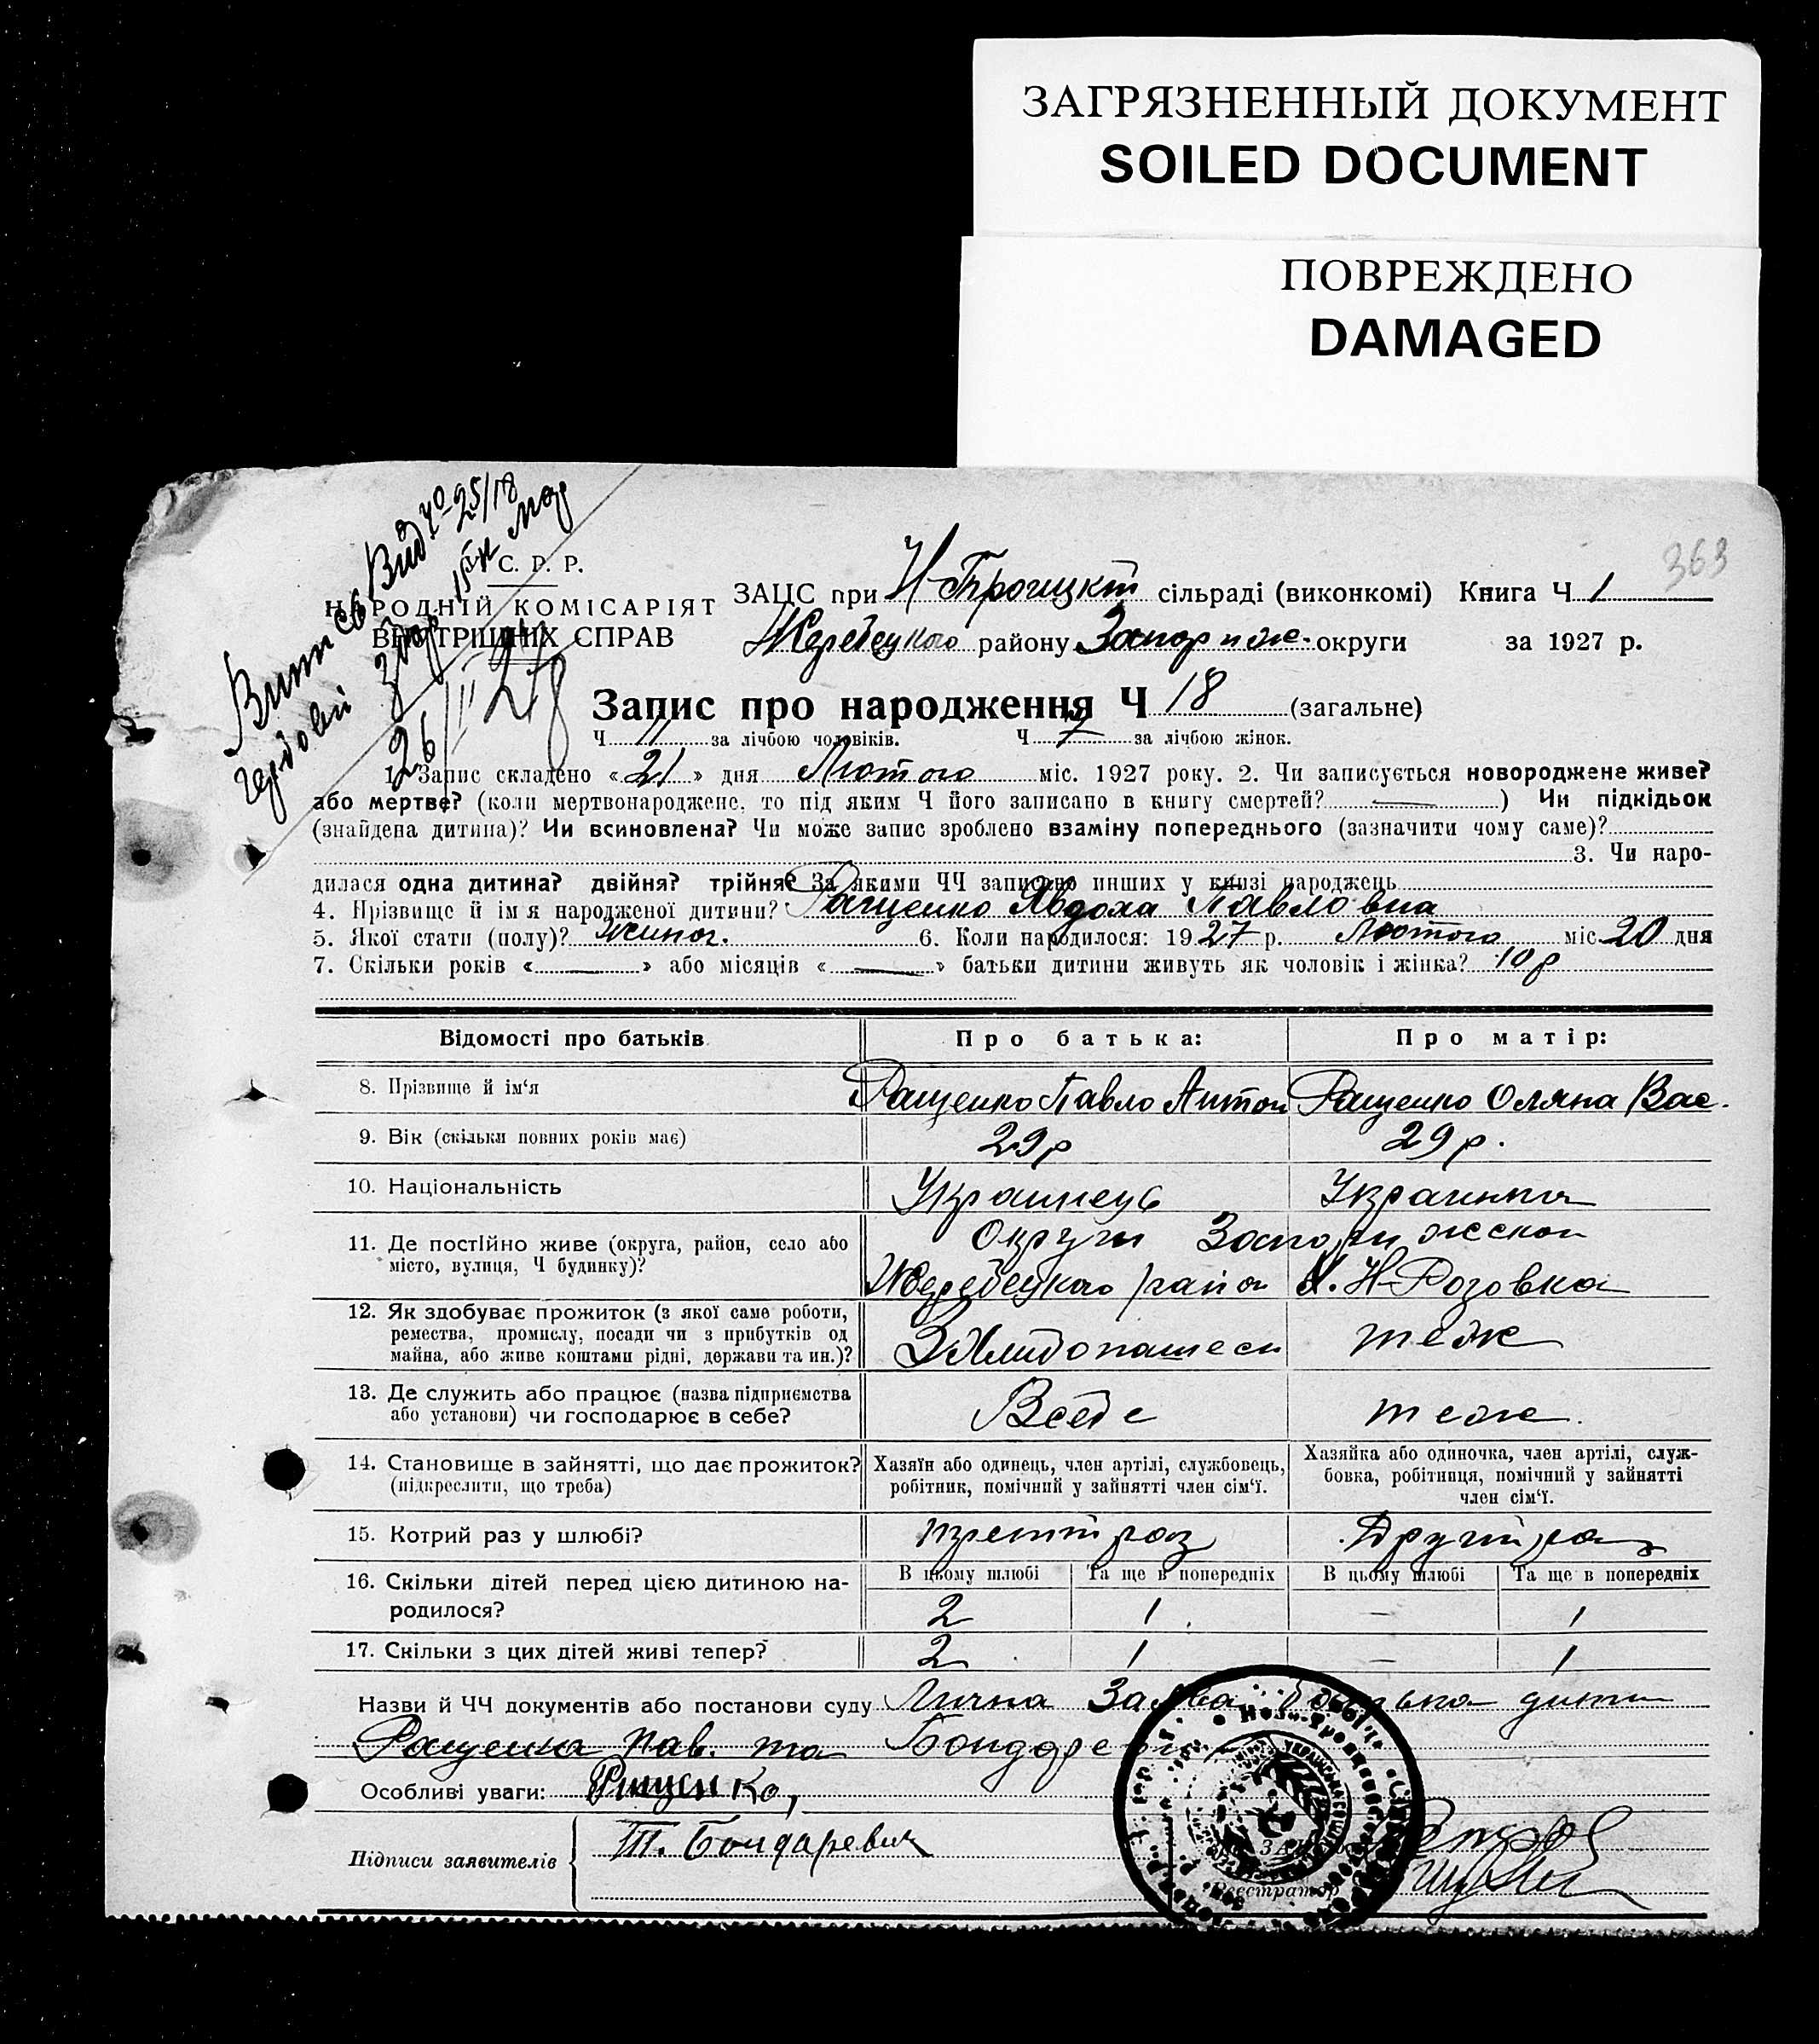 ЗАГРЯЗНЕННЫЙ ДОКУМЕНТ
SOILED DOCUMENT
ПОВРЕЖДЕНО
DAMAGED
363
С. Р. Р.
НАРОДНІЙ КОМІСАРІЯТ
ВНУТРІШНІХ СПРАВ
ЗАЦС при Н-Троицкт сільраді (виконкомі) Книга Ч 1
Жеребецкого району Запориж- округи за 1927 р.
Запис про народження Ч 18 (загальне)
Ч 11 за лічбою чоловіків. Ч 7 за лічбою жінок.
1. Запис складено «21» дня Лютого міс. 1927 року. 2. Чи записується новороджене живе?
або мертве? (коли мертвонароджене, то під яким Ч його записано в книгу смертей? —) Чи підкідьок
(знайдена дитина)? Чи всиновлена? Чи може запис зроблено взаміну попереднього (зазначити чому саме)?
3. Чи наро-
дилася одна дитина? двійня? трійня? За якими ЧЧ записано инших у книзі народжень
4. Прізвище й ім'я народженої дитини? Ращенко Явдоха Павловна
5. Якої стати (полу)? Жиноч. 6. Коли народилося: 1927 р. Лютого міс. 20 дня
7. Скільки років «—» або місяців «—» батьки дитини живуть як чоловік і жінка? 10 р
Відомості про батьків Про батька: Про матір:
8. Прізвище й ім'я Ращенко Павло Антон Ращенко Оляна Вас.
9. Вік (скільки повних років має) 29р 29р.
10. Національність Украинець Украинка
11. Де постійно живе (округа, район, село або місто, вулиця, Ч будинку)? Округи Запорижской
Жеребецкого район Х. Н-Розовка
12. Як здобуває прожиток (з якої саме роботи,
ремества, промислу, посади чи з прибутків од
майна, або живе коштами рідні, держави та ин.)? теж
13. Де служить або працює (назва підприємства
або установи) чи господарює в себе? Всебе теж.
14. Становище в зайнятті, що дає прожиток?
(підкреслити, що треба)
Хазяїн або одинець, член артілі, службовець,
робітник, помічний у зайнятті член сім'ї.
Хазяйка або одиночка, член артілі, служ-
бовка, робітниця, помічний у зайнятті
член сім'ї.
15. Котрий раз у шлюбі? раз Другий раз
16. Скільки дітей перед цією дитиною на-
родилося?
В цьому шлюбі Та ще в попередніх В цьому шлюбі Та ще в попередніх
2 1 — 1
17. Скільки з цих дітей живі тепер? 2 1 — 1
Назви й ЧЧ документів або постанови суду Лична Заява батька дити
Ращенка Пав. та Бондаревич
Особливі уваги: Ращенко,
Підписи заявителів Т. Бондаревич
Реєстратор